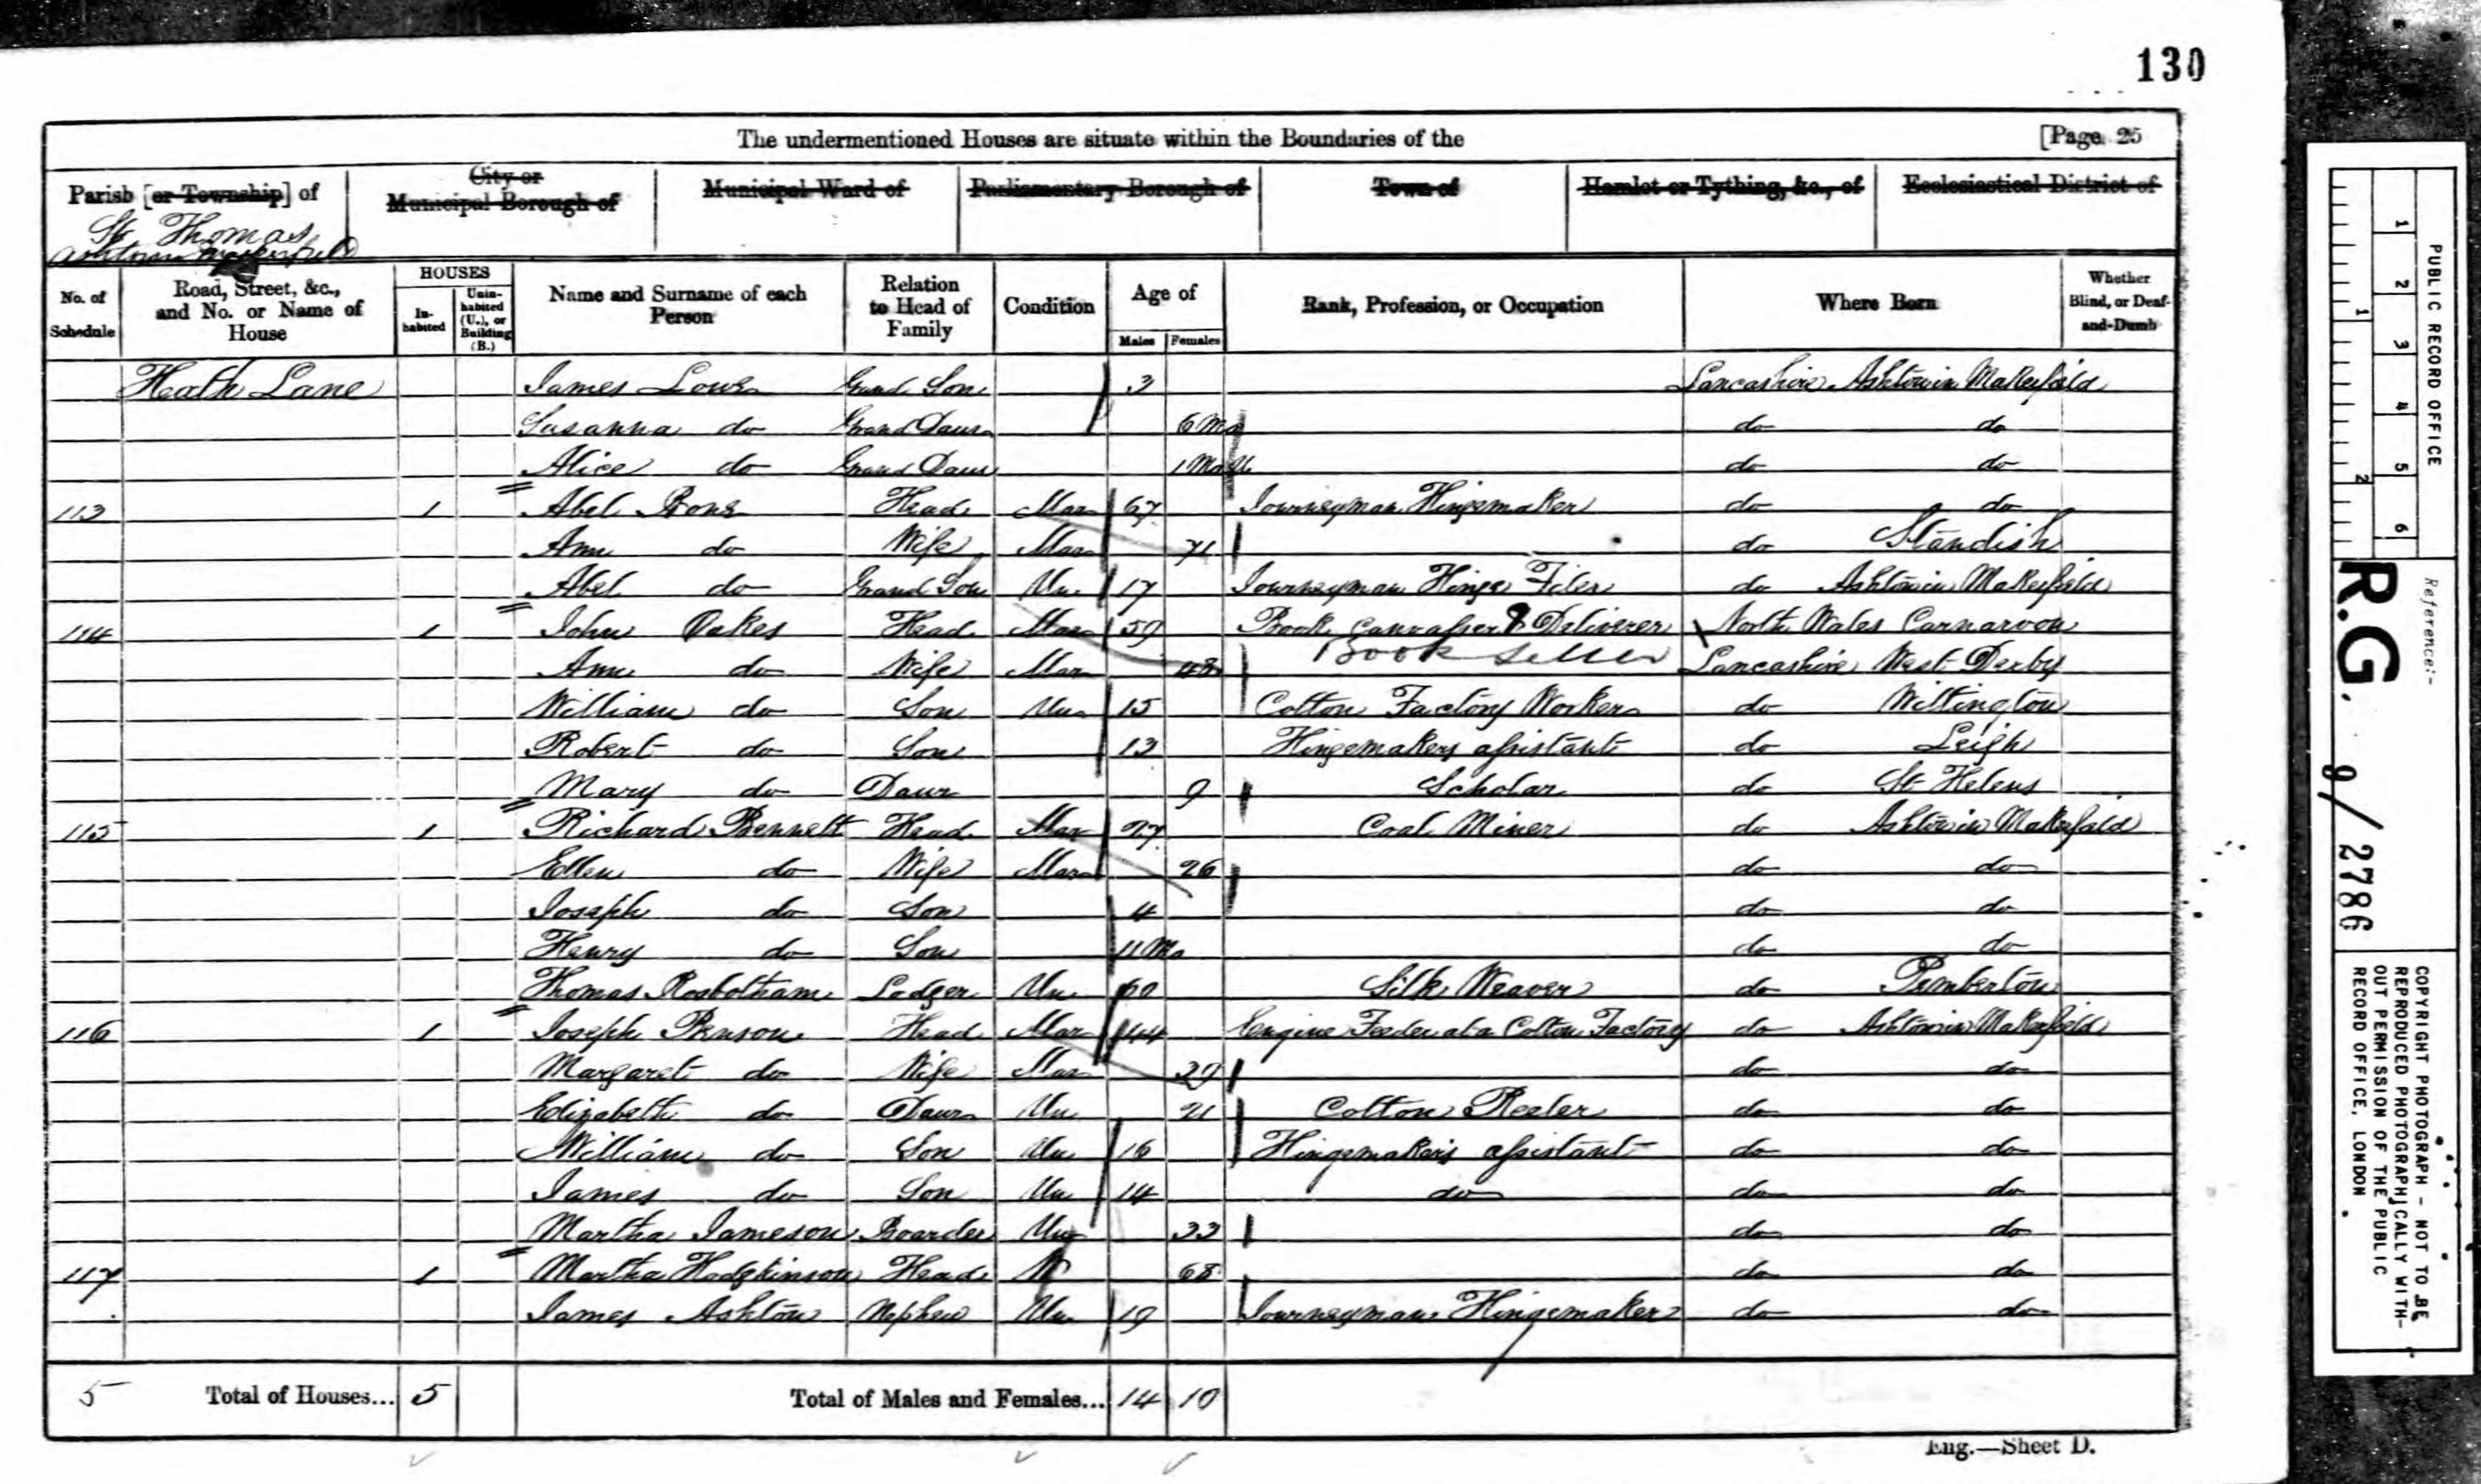 130
The undermentioned Houses are situate within the Boundaries of the [Page 25
Parish [or Township] of City or Municipal Borough of Municipal Ward of Parliamentary Borough of Town of Hamlet or Tything, &c., of Ecclesiastical District of
St Thomas
Ashton in Makerfield
No. of Schedule Road, Street, &c., and No. or Name of House HOUSES In-habited Unin-habited (U.), or Building (B.) Name and Surname of each Person Relation to Head of Family Condition Age of Males Females Rank, Profession, or Occupation Where Born Whether Blind, or Deaf-and-Dumb
Heath Lane James Lowe Grand Son 3 Lancashire Ashton in Makerfield
Susanna do Grand Daur 6 Mo do do
Alice do Grand Daur 1 Mo do do
113 1 Abel Head Mar 67 Journeyman Hingemaker do do
Ann do Wife Mar 71 do Standish
Abel do Grand Son Un 17 Journeyman Hinge Filer do Ashton in Makerfield
114 1 John Oakes Head Mar 59 Book Canvasser & Deliverer North Wales Carnarvon
Book Seller
Ann do Wife Mar 48 Lancashire West Derby
William do Son Un 15 Cotton Factory Worker do Wittington
Robert do Son 13 Hingemakers assistant do Leigh
Mary do Daur 9 Scholar do St Helens
115 1 Richard Bennett Head Mar 27 Coal Miner do Ashton in Makerfield
Ellen do Wife Mar 26 do do
Joseph do Son 4 do do
Henry do Son 11 Mo do do
Thomas Rosbotham Lodger Un 60 Silk Weaver do Pemberton
116 1 Joseph Benson Head Mar 44 Engine Feeder at a Cotton Factory do Ashton in Makerfield
Margaret do Wife Mar 39 do do
Elizabeth do Daur Un 21 Cotton Reeler do do
William do Son Un 16 Hingemaker's assistant do do
James do Son Un 14 do do do
Martha Jameson Boarder Un 33 do do
117 1 Martha Hodgkinson Head W 68 do do
James Ashton Nephew Un 19 Journeyman Hingemaker do do
5 Total of Houses... 5 Total of Males and Females... 14 10
Eng.—Sheet D.
PUBLIC RECORD OFFICE
1 2 3 4 5 6
1 2
Reference:-
R.G. 9/2786
COPYRIGHT PHOTOGRAPH - NOT TO BE
REPRODUCED PHOTOGRAPHICALLY WITH-
OUT PERMISSION OF THE PUBLIC
RECORD OFFICE, LONDON